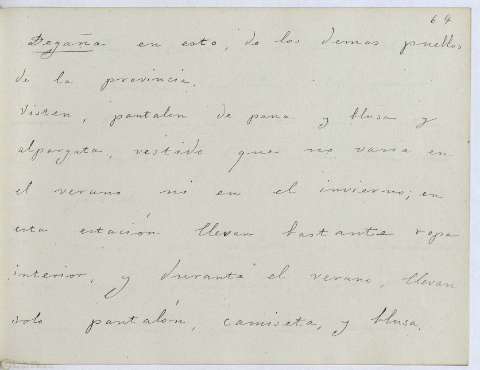 64
Degaña en esto, de los demas pueblos
de la provincia.
Visten, pantalon de pana y blusa y
alpargata, vestido que no varia en
el verano ni en el invierno; en
esta estación llevan bastante ropa
interior, y durante el verano, llevan
solo pantalón, camiseta, y blusa.